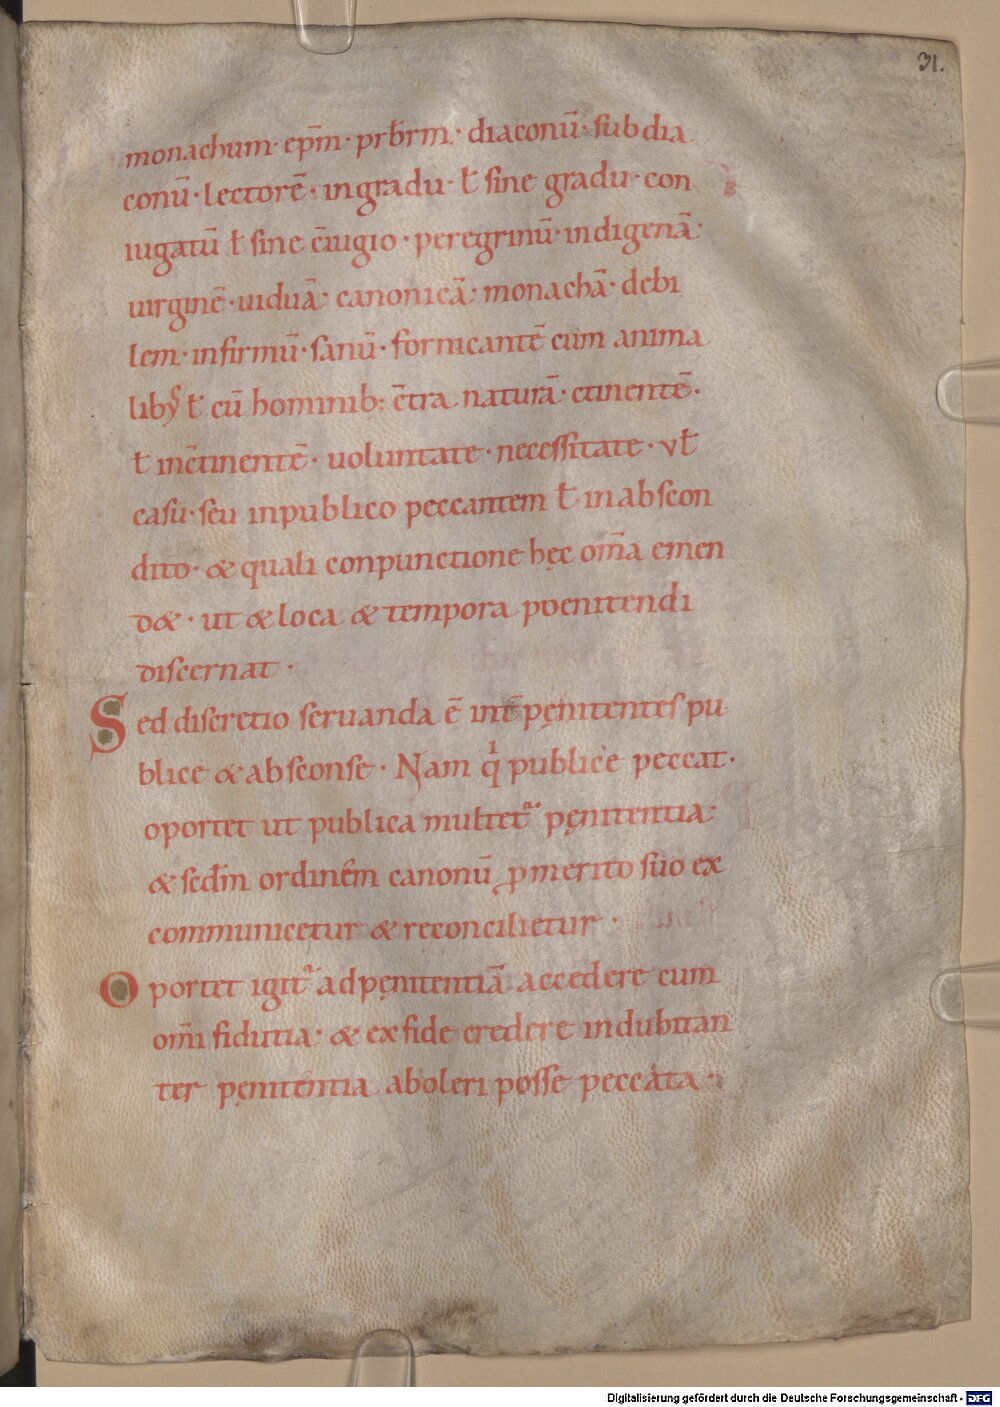 31.
monachum· ep̄m· prb̄rm· diaconū· subdia
conū· lectorē· ingradu· ł sine gradu· con
iugatū ł sine c̄iugio· peregrinū· indigenā·
uirginē· uiduā· canonicā· monachā· debi
lem· infirmū· sanū· fornicantē cum anima
libꝰ ł cū hominib: c̄tra naturā· c̄tinentē·
ł inc̄tinentē· uoluntate· necessitate· vł
casu· seu inpublico peccantem ł in abscon
dito· & quali conpunctione hęc om̄a emen
d&· ut & loca & tempora poenitendi
discernat·
Sed discretio seruanda ē int̄ pęnitentes pu
blice & absconse· Nam qͥ publice peccat·
oportet ut publica multet᷑ pęnitentia·
& sed̄m ordinēm canonū ꝓ merito suo ex
communicetur & reconcilietur·
Oportet igit᷑ ad pęnitentiā accedere cum
om̄i fidutia· & ex fide credere indubitan
ter pęnitentia aboleri posse peccata·
Digitalisierung gefördert durch die Deutsche Forschungsgemeinschaft - DFG